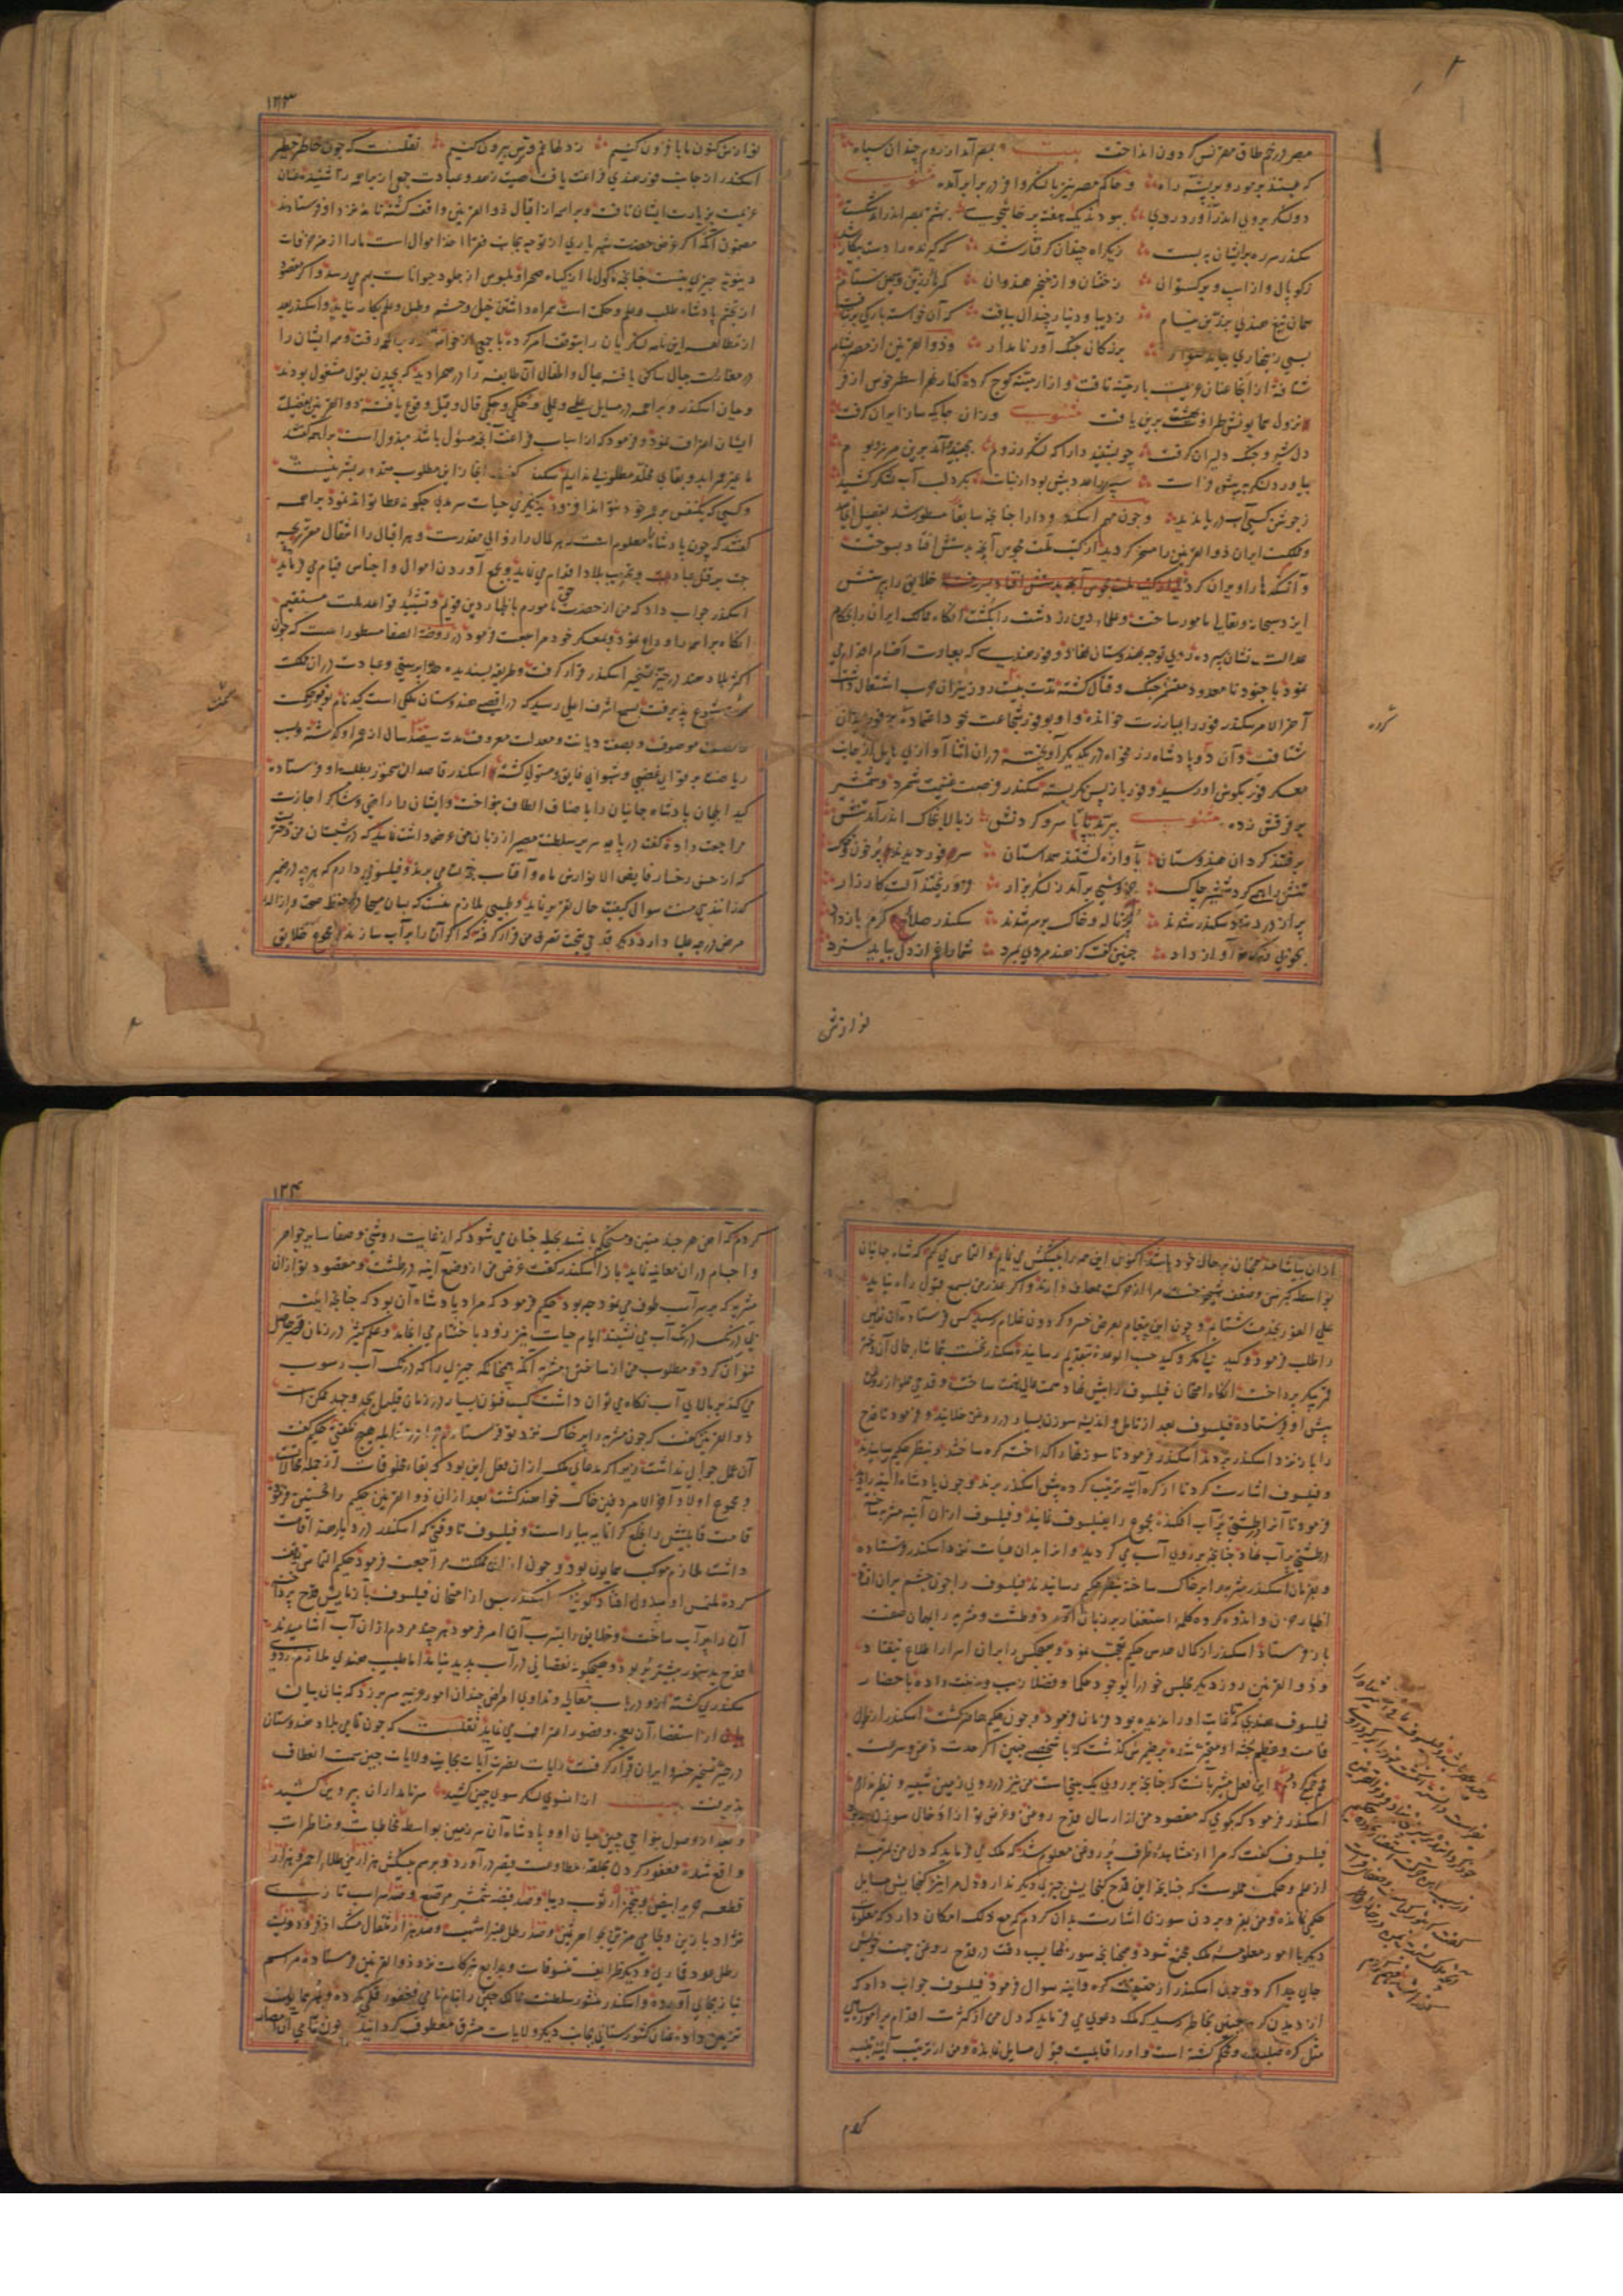 مصر در خم طاق مقرنس گردون انداخت بیت بمصر آمد از روم چندان سپاه
که بستند بر مور و بر پشه راه و حاکم مصر نیز با لشکر در برابر آمده مثنوی
دو لشکر بروی اندر آورد روی ببودند یک هفته پرخاشجوی بهشتم بمصر اندر آمد شکست
سکندر سر ره بر ایشان ببست ز یکراه چندان گرفتار شد که گیرنده را دست بیکار شد
ز کوپال و از اسب و برگستوان ز خفتان و از خنجر هندوان
همان تیغ هندی بزرین نیام ز دیبا و دینار چندان بیافت که آن خواسته بارگی بر نتافت
بزرگان جنگ آور نامدار و ذوالقرنین از مصر بشام
شتافته از آنجا عنان عزیمت بارمنیه تافت و از ارمنیه کوچ کرده کنار نهر
نزول همایونش طراوت بهشت برین یافت مثنوی وزان جایگه ساز ایران گرفت
دل شیر و چنگ دلیران گرفت چو بشنید دارا که لشکر ز روم بجنبید آمد برین مرز و بوم
بیاورد لشکر به پیش فرات سپه را عدد بیش بود از نبات بگرد لب آب لشکر کشید
ز جوشن کسی آب دریا ندید و چون مهم اسکندر و دارا چنانچه سابقا مسطور شد بتفصیل انجامید
و مملکت ایران ذوالقرنین را مسخر گردید از کتب ملت مجوس آنچه بدستش افتاد بسوخت
و آتشکده ها را ویران کرد خلایق را بپرستش
ایزد سبحانه و تعالی مامور ساخت و علماء دین زردشت را بکشت آنگاه ممالک ایران را بحکام
عدالت نشان سپرده روی توجه بهندوستان نهاد و فور هندی که بعبادت اصنام اقدام می
نمود با جنود نامعدود متصدی جنگ و قتال گشته مدت بیست روز نیران حرب اشتعال داشت
آخر الامر سکندر فور را بمبارزت خوانده و او بوفور شجاعت خود اعتماد نموده بمیدان
شتافت و آن دو پادشاه رزم خواه در یکدیگر آویخته در آن اثنا آوازی هایل از جانب
معسکر فور بگوش او رسید و فور باز پس نگریسته سکندر فرصت غنیمت شمرد و شمشیر
بر فرقش زده مثنوی ببرید تا پا سر و گردنش ز بالا بخاک اندر آمد تنش
برفتند گردان هندوستان بآواز گفتند همداستان سر فور دیدند پر خون و خاک
تنش را همه کرده شمشیر چاک خروشی برآمد ز لشکر بزار فرو ریختند آلت کارزار
پر از درد نزد سکندر شدند پر از ناله و خاک بر سر شدند سکندر صلاح کرم باز داد
بخوبی بهرکس آواز داد چنین گفت کز هند مردی بمرد شما را غم از دل بباید سترد
کرده
نوازش
۱۲۳
نوازش کنون ما بافزون کنیم ز دلها غم و ترس بیرون کنیم نقلست که چون خاطر خطیر
اسکندر از جانب فور هندی فراغت یافت صیت زهد و عبادت جمعی از براهمه را شنیده عنان
عزیمت بزیارت ایشان تافت و براهمه از اقبال ذوالقرنین واقف گشته نامه نزد او فرستادند
مضمون آنکه اگر غرض حضرت شهریاری از توجه بجانب فقرا اخذ اموال است ما را از مزخرفات
دنیویه چیزی نیست چنانچه ماکول ما از گیاه صحرا و ملبوس از جلود حیوانات بهم میرسد و اگر مقصود
از تجشم پادشاه طلب و علم و حکمت است همراه داشتن خیل و حشم و طبل و علم بکار نیاید و اسکندر بعد
از مطالعه این نامه لشکریان را بتوقف امر کرده با جمعی از خواص نزد براهمه رفت و مر ایشان را
در مغارات جبال ساکن یافته عیال و اطفال آن طایفه را در صحرا دید که بچیدن بقول مشغول بودند
و میان اسکندر و براهمه در مسایل علمی و عملی و حکمی قال و قیل وقوع یافت و ذوالقرنین بفضیلت
ایشان اعتراف نمود و فرمود که از اسباب فراغت آنچه مسؤل باشد مبذول است براهمه گفتند
ما بغیر عمر ابد و بقای مخلد مطلوبی نداریم سکندر گفت انجاز این مطلوب مقدور بشر نیست
و کسی که یکنفس بر عمر خود نتواند افزود دیگری را حیات سرمدی چگونه عطا تواند نمود براهمه
گفتند که چون پادشاه را معلوم است که هر کمال را زوالی مقدرست و هر اقبال را انتقال مقرر بچه
جهت بر قتل عباد و تخریب بلاد اقدام می نماید و بجمع آوردن اموال و اجناس قیام می فرماید
اسکندر جواب داد که من از حضرت حق مامورم باظهار دین قویم و تشیید قواعد ملت مستقیم
آنگاه براهمه را وداع نموده بمعسکر خود مراجعت فرمود در روضة الصفا مسطور است که چون
اکثر بلاد هند در حیز تسخیر اسکندر قرار گرفت و طریقه پسندیده خدا پرستی و عبادت در آن مملکت
شیوع پذیرفت بسمع اشرف اعلی رسید که در اقصی هندوستان ملکی است کید نام بوفور حکمت
موصوف و بصفت دیانت و معدلت معروف مدت سیصد سال از عمر او گذشته و بسبب
ریاضت بر قوای غضبی و شهوانی فایق و مستولی گشته اسکندر قاصدان سخنور بطلب او فرستاده
کید ایلچیان پادشاه جهانیان را باصناف الطاف بنواخت و ایشان را راضی و شاکر اجازت
مراجعت داده گفت در پایه سریر سلطنت مصیر از زبان من عرضه داشت نمایید که در شبستان من دختریست
که از حسن رخسار فایض الانوارش ماه و آفتاب رشک می برند و فیلسوفی دارم که هر چه در ضمیر
گذرانند بی سبقت سوالی کیفیت حال تقریر نماید و طبیبی ملازم منست که بسان مسیحا در حفظ صحت و ازاله
مرض درجه علیا دارد دیگر قدحی تحت تصرف من قرار گرفته که اگر آن را پر آب سازند و مجموع خلایق
از آن بیاشامند همچنان بر حال خود باشد اکنون این همه را پیشکش می نمایم و التماس می کنم که شاه جهانیان
بواسطه کبر سن و ضعف شیخوخت مرا از حرکت معاف دارند و اگر عذر من بسمع قبول راه نیابد
علی الفور بخدمت شتابم و چون این پیغام بعرض خسرو گردون غلام رسید کس فرستاده آن نفایس
را طلب فرمود و کید بی مکر و کید حسب الوعده بتقدیم رسانید اسکندر نخست بتماشای جمال آن دختر
قمر پیکر پرداخت آنگاه امتحان فیلسوف را پیش نهاد همت عالی نهمت ساخت و قدحی مملو از روغن
پیش او فرستاد فیلسوف بعد از تامل و اندیشه سوزن بسیار در روغن خلانید و فرمود تا قدح
را باز نزد اسکندر بردند اسکندر فرمود تا سوزنها را گداخته کره ساختند و بنظر حکیم رسانیدند
و فیلسوف اشارت کرد تا از کره آینه ترتیب کرده پیش اسکندر بردند و چون پادشاه آینه را دید
فرمود تا آنرا در طشتی پر آب افکنده مجموع را بفیلسوف نمایند و فیلسوف از آن آینه مشربه ساخته
در طشت پر آب نهاد چنانچه بر روی آب می گردید و از ابدان هیات نزد اسکندر فرستاده
و بفرمان اسکندر مشربه را پر خاک ساخته بنظر حکیم رسانیدند فیلسوف را چون چشم بر آن افتاد
اظهار حزن و اندوه کرده کلمه استغفار بر زبان آورد و طشت و مشربه را بهمان صفت
باز فرستاد اسکندر از کمال حدس حکیم تعجب نمود و هیچکس را بر آن اسرار اطلاع نیفتاد
و ذوالقرنین روز دیگر مجلس خود را بوجود حکما و فضلا زیب و زینت داده باحضار
فیلسوف هندی که تا غایت او را ندیده بود فرمان فرمود و چون حکیم حاضر گشت اسکندر از طول
قامت و عظیم جثه او متحیر شده بر ضمیرش گذشت که با شخصی چنین اگر حدت ذهن و سرعت
فهم جمع گردد این فعل مشیر بآنست که چنانچه بر روی یک بینی است من نیز در روی زمین شبیه و نظیر ندارم
اسکندر فرمود که بگوی که مقصود من از ارسال قدح روغن و غرض تو از ادخال سوزن چه بود
فیلسوف گفت که مرا از مشاهده ظرف پر روغن معلوم شد که ملک می فرماید که دل من بمرتبه
از علم و حکمت مملوست که چنانچه این قدح گنجایش چیزی دیگر ندارد دل مرا نیز گنجایش مسایل
حکمی نمانده و من بفرو بردن سوزن اشارت بدان کردم که مع ذلک امکان دارد که معلومات
دیگر با امور معلومه ملک مجتمع شود و همچنانچه سوزنها بسبب دقت در قدح روغن جهت خویش
جای پیدا کرد و چون اسکندر از حقیقت کره و آینه سوال فرمود فیلسوف جواب داد که
از دیدن کره چنین بخاطر رسید که ملک دعوی می فرماید که دل من از کثرت اقدام بر امور سیاسی
مثل کره صلب و محکم گشته است و او را قابلیت قبول مسایل نمانده و من از ترتیب آینه تنبیه
کردم
۱۲۴
کردم که آهن هر چند متین و مستحکم باشد بحیله چنان می شود که از غایت روشنی و صفا سایر جواهر
و اجسام در آن معاینه نماید باز اسکندر گفت غرض من از وضع آینه در طشت و مقصود تو از آن
مشربه که بر سر آب طوف می نمود چه بود حکیم فرمود که مراد پادشاه آن بود که چنانچه آینه
بی درنگ در تک آب می نشیند ایام حیات نیز زود باختتام می انجامد و علم کثیر در زمان قصیر حاصل
نتوان کرد و مطلوب من از ساختن مشربه آنکه همچنانکه چیزی را که در تک آب رسوب
می کند بر بالای آب نگاه می توان داشت کسب فنون بسیار در زمان قلیل بجد و جهد ممکن است
ذوالقرنین گفت که چون مشربه را پر خاک نزد تو فرستادم چرا در مقابله هیچ نگفتی حکیم گفت
آن عمل جوابی نداشت زیرا که مدعای ملک از آن فعل این بود که بقاء مخلوقات از جمله محالات است
و مجموع اولاد آدم آخر الامر دفین خاک خواهند گشت بعد از آن ذوالقرنین حکیم را تحسین فرموده
قامت قابلیتش را بخلع گرانمایه بیاراست و فیلسوف تا وقتی که اسکندر در دیار هند اقامت
داشت ملازم موکب همایون بود و چون از آن مملکت مراجعت فرمود حکیم التماس توقف
کرده ملتمس او مبذول افتاد گویند اسکندر پس از امتحان فیلسوف بآزمایش قدح پرداخت
آن را پر آب ساخت و خلایق را بشرب آن امر فرمود هر چند مردم از آن آب آشامیدند
قدح بدستور پیشتر پر بود و هیچگونه نقصانی در آب پدید نیامد اما طبیب هندی ملازم اردوی
سکندری گشته ازو در باب معالجه و تداوی امراض چندان امور غریبه سر برزد که بنان بیان
از استقصاء آن بعجز و قصور اعتراف می نماید نقلست که چون تمامی بلاد هندوستان
در حیز تسخیر خسرو ایران قرار گرفت رایات نصرت آیات بجانب ولایات چین سمت انعطاف
پذیرفت بیت از انسوی لشکر سوی چین کشید سر نامداران به پروین کشید
و بعد از وصول بنواحی چین میان او و پادشاه آن سرزمین بواسطه مخاطبات و مناظرات
واقع شده فغفور گردن بحلقه مطاوعت قیصر درآورد و برسم پیشکش هزار من طلاء احمر و هزار
قطعه حریر ابیض و پنجهزار ثوب دیبا و صد قبضه شمشیر مرصع و صد سر اسب تازی
نژاد با زین و لجام مزین بجواهر ثمین و صد رطل عنبر اشهب و صد هزار مثقال مشک اذفر و دویست
رطل عود قماری و دیگر ظرایف تنسوقات و بدایع تبرکات نزد ذوالقرنین فرستاده مراسم
نیاز بجای آورد و اسکندر منشور سلطنت ممالک چین را بنام نامی فغفور قلمی کرده و بمهر همایون
تزیین داده عنان کشورستانی بجانب دیگر ولایات مشرق معطوف گردانید و چون تمامی آن امصار